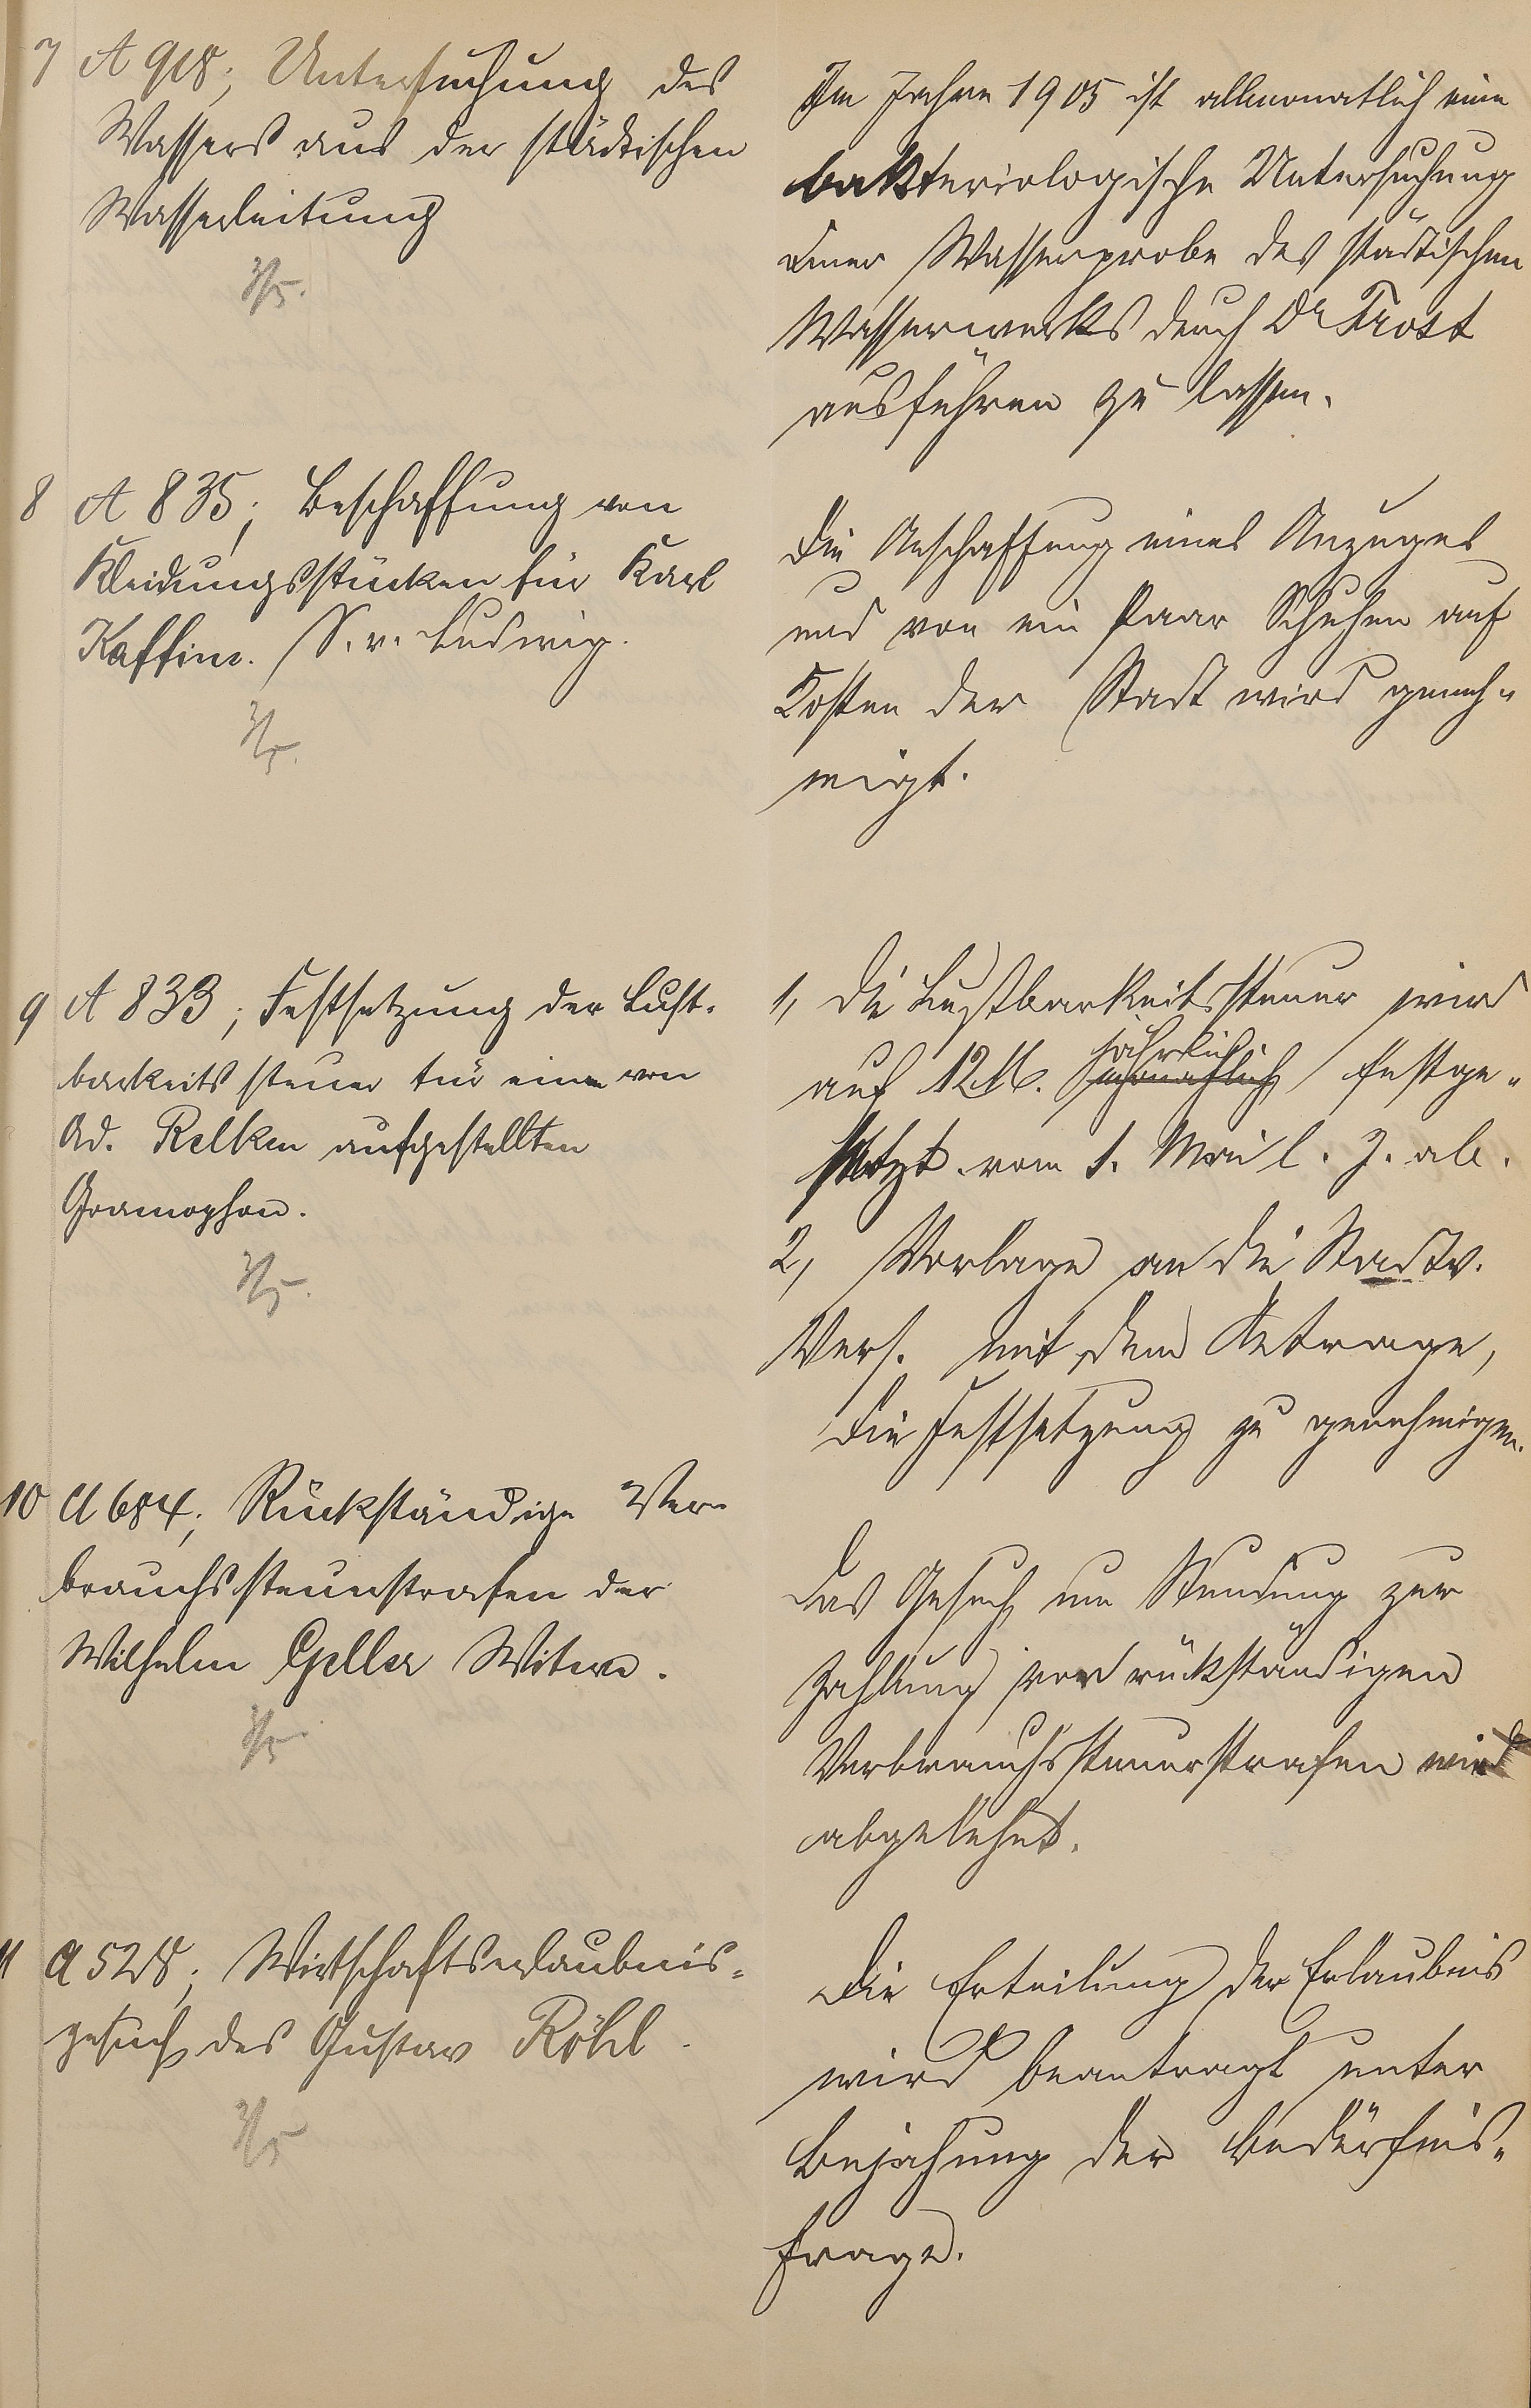 7 A 918; Untersuchung des
Wassers aus der städtischen
Wasserleitung
3/5.
Im Jahre 1905 ist allmonatlich eine
bakteriologische Untersuchung
einer Wasserprobe des städtischen
Wasserwerks durch Dr Trost
ausführen zu lassen.
8 A 835; Beschaffung von
Kleidungsstücken für Karl
Kaffine. S. v. Ludwig.
3/5.
Die Anschaffung eines Anzuges
und von ein Paar Schuhen auf
Kosten der Stadt wird geneh-
migt.
9 A 833; Festsetzung der Lust-
barkeitssteuer für einen von
Ad. Relken aufgestellten
Gramophon.
3/5.
1, Die Lustbarkeitssteuer wird
auf 12 M. jährlich festge-
setzt vom 1. Mai l. J. ab.
2, Vorlage an die Stadtv.
Vers. mit dem Antrage,
die Festsetzung zu genehmigen.
10 A 684; Rückständige Ver-
brauchssteuerstrafen der
Wilhelm Geller Witwe.
3/5.
Das Gesuch um Stundung zur
Zahlung von rückständigen
Verbrauchssteuerstrafen wird
abgelehnt.
11 A 528; Wirtschaftserlaubnis-
gesuch des Gustav Röhl.
3/5
Die Erteilung der Erlaubnis
wird beantragt unter
Bejahung der Bedürfnis-
frage.